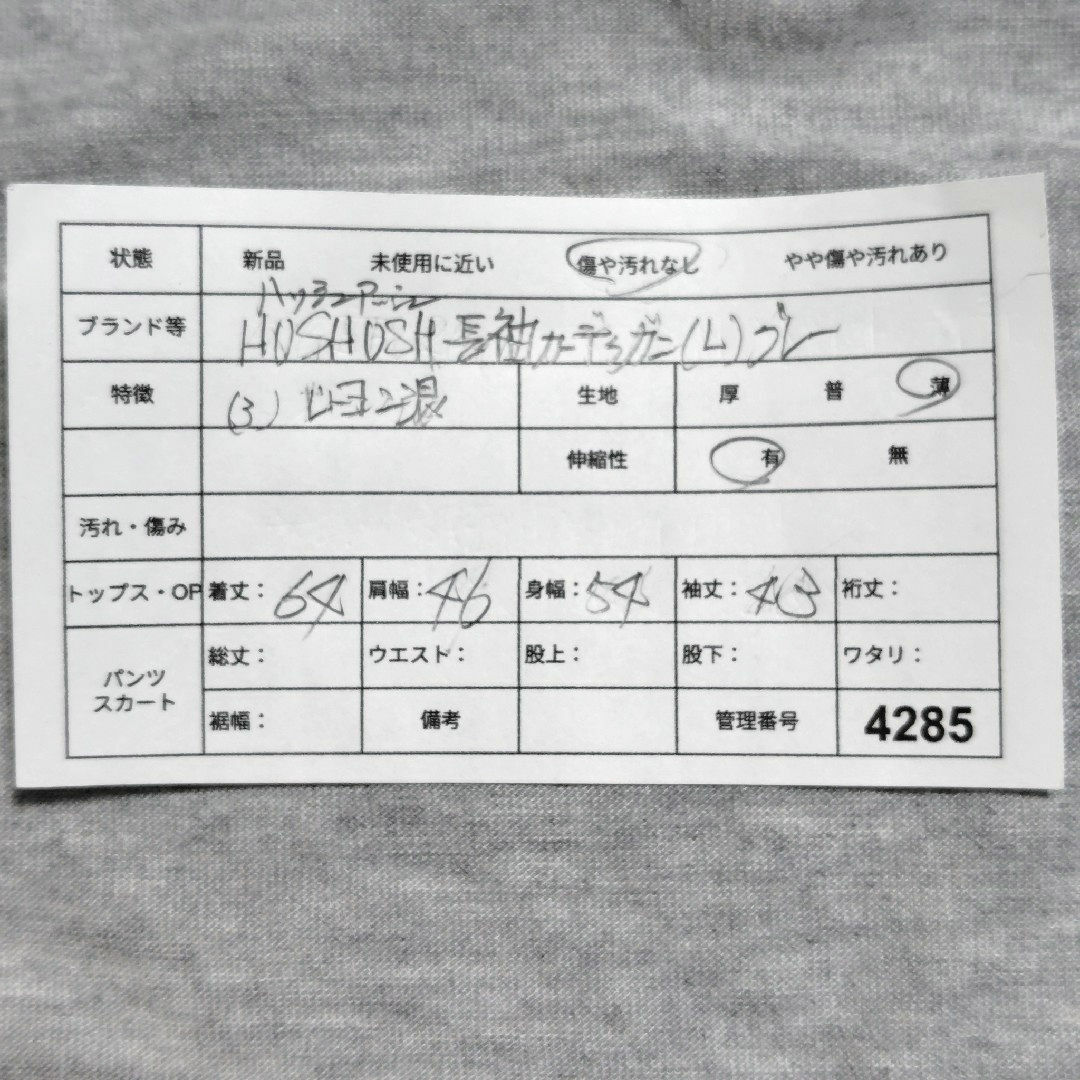 状態 新品 未使用に近い 傷や汚れなし やや傷や汚れあり
ハッシュアッシュ
ブランド等 HUSHUSH 長袖カーディガン(L)グレー
特徴 (3) レーヨン混 生地 厚 普 薄
伸縮性 有 無
汚れ・傷み
トップス・OP 着丈: 64 肩幅: 46 身幅: 54 袖丈: 43 裄丈:
パンツ スカート 総丈: ウエスト: 股上: 股下: ワタリ:
裾幅: 備考 管理番号 4285